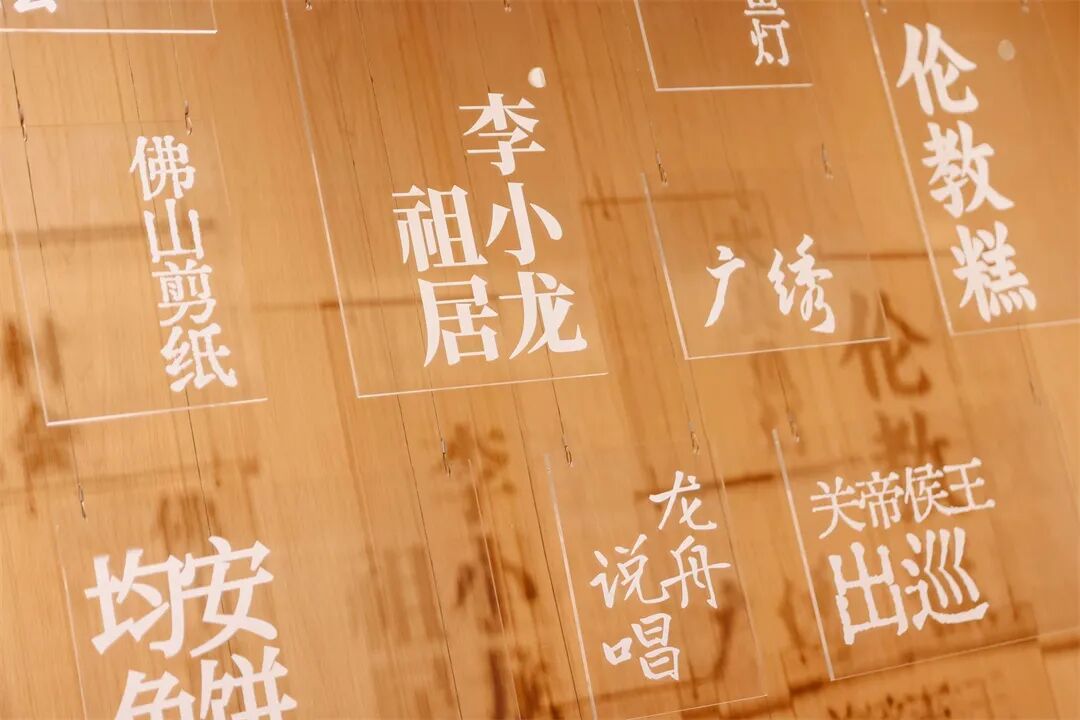 佛山剪纸
李小龙
祖居
灯
广绣
伦教糕
均安
鱼饼
龙舟
说唱
关帝侯王
出巡